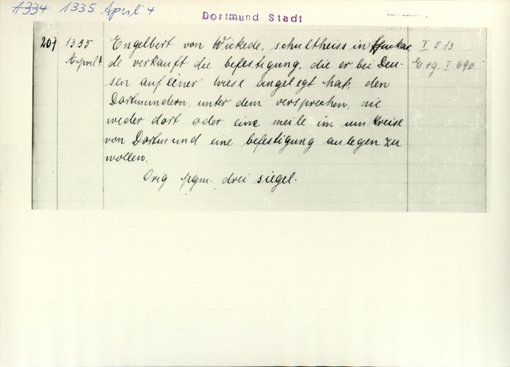 1334 1335 April 4
Dortmund Stadt
207 1335 Engelbert von Wickede, schultheiss in T. U 13
April 4 de verkauft die befestigung, die er bei Deu- Erg. I 690.
sen auf einer wiese angelegt hat, den
Dortmundern unter dem versprechen, nie
wieder dort oder eine meile im um kreise
von Dortmund eine befestigung anlegen zu
wollen.
Orig pgm. drei siegel.